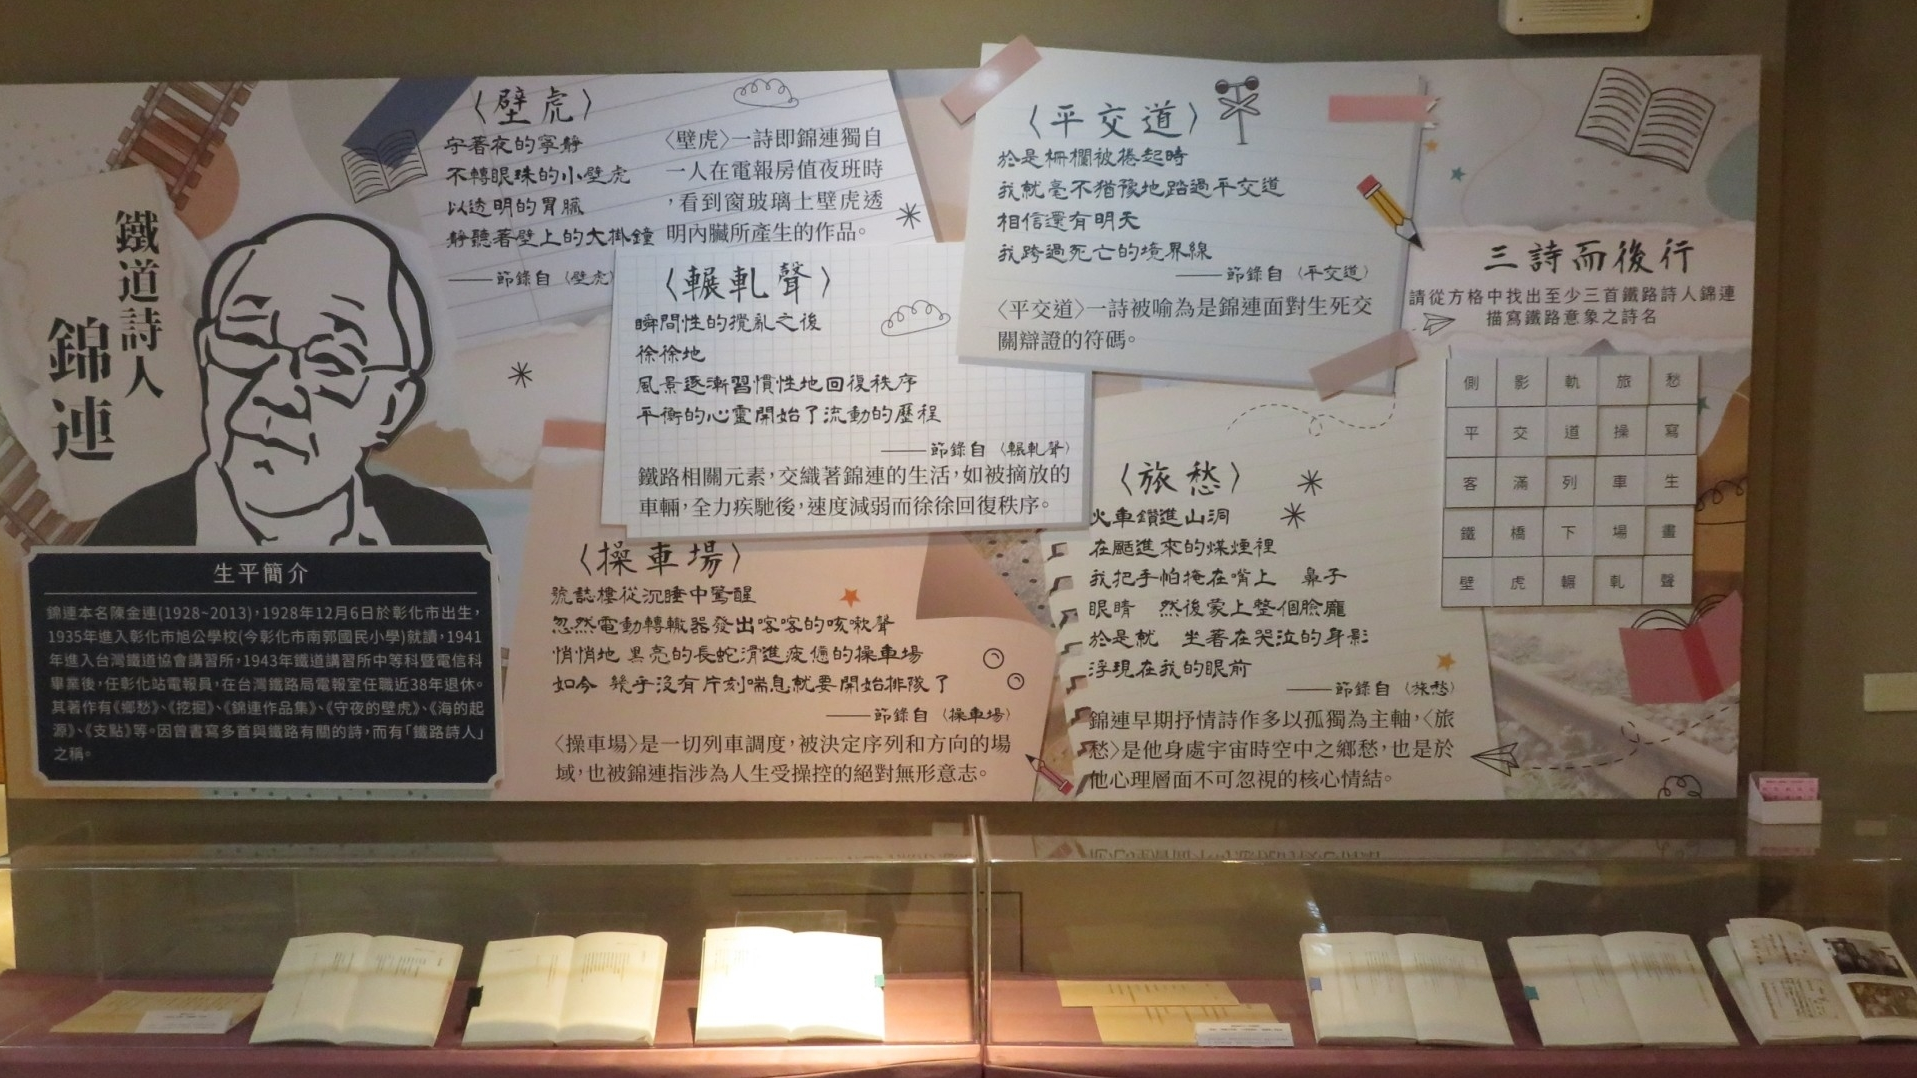 鐵道詩人
錦連
生平簡介
錦連本名陳金連(1928~2013)，1928年12月6日於彰化市出生，
1935年進入彰化市旭公學校(今彰化市南郭國民小學)就讀，1941
年進入台灣鐵道協會講習所，1943年鐵道講習所中等科暨電信科
畢業後，任彰化站電報員，在台灣鐵路局電報室任職近38年退休。
其著作有《鄉愁》、《挖掘》、《錦連作品集》、《守夜的壁虎》、《海的起
源》、《支點》等。因曾書寫多首與鐵路有關的詩，而有「鐵路詩人」
之稱。
〈壁虎〉
守著夜的寧靜
不轉眼珠的小壁虎
以透明的胃臟
靜聽著壁上的大掛鐘
——節錄自〈壁虎〉
〈壁虎〉一詩即錦連獨自
一人在電報房值夜班時
，看到窗玻璃上壁虎透
明內臟所產生的作品。
〈輾軋聲〉
瞬間性的攪亂之後
徐徐地
風景逐漸習慣性地回復秩序
平衡的心靈開始了流動的歷程
——節錄自〈輾軋聲〉
鐵路相關元素，交織著錦連的生活，如被摘放的
車輛，全力疾馳後，速度減弱而徐徐回復秩序。
〈操車場〉
號誌樓從沉睡中驚醒
忽然電動轉轍器發出喀喀的咳嗽聲
悄悄地 黑亮的長蛇滑進疲憊的操車場
如今 幾乎沒有片刻喘息就要開始排隊了
——節錄自〈操車場〉
〈操車場〉是一切列車調度，被決定序列和方向的場
域，也被錦連指涉為人生受操控的絕對無形意志。
〈平交道〉
於是柵欄被捲起時
我就毫不猶豫地踏過平交道
相信還有明天
我跨過死亡的境界線
——節錄自〈平交道〉
〈平交道〉一詩被喻為是錦連面對生死交
關辯證的符碼。
〈旅愁〉
火車鑽進山洞
在颳進來的煤煙裡
我把手帕掩在嘴上　鼻子
眼睛　然後蒙上整個臉龐
於是就　坐著在哭泣的身影
浮現在我的眼前
——節錄自〈旅愁〉
錦連早期抒情詩作多以孤獨為主軸，〈旅
愁〉是他身處宇宙時空中之鄉愁，也是於
他心理層面不可忽視的核心情結。
三詩而後行
請從方格中找出至少三首鐵路詩人錦連
描寫鐵路意象之詩名
側 影 軌 旅 愁
平 交 道 操 寫
客 滿 列 車 生
鐵 橋 下 場 畫
壁 虎 輾 軋 聲